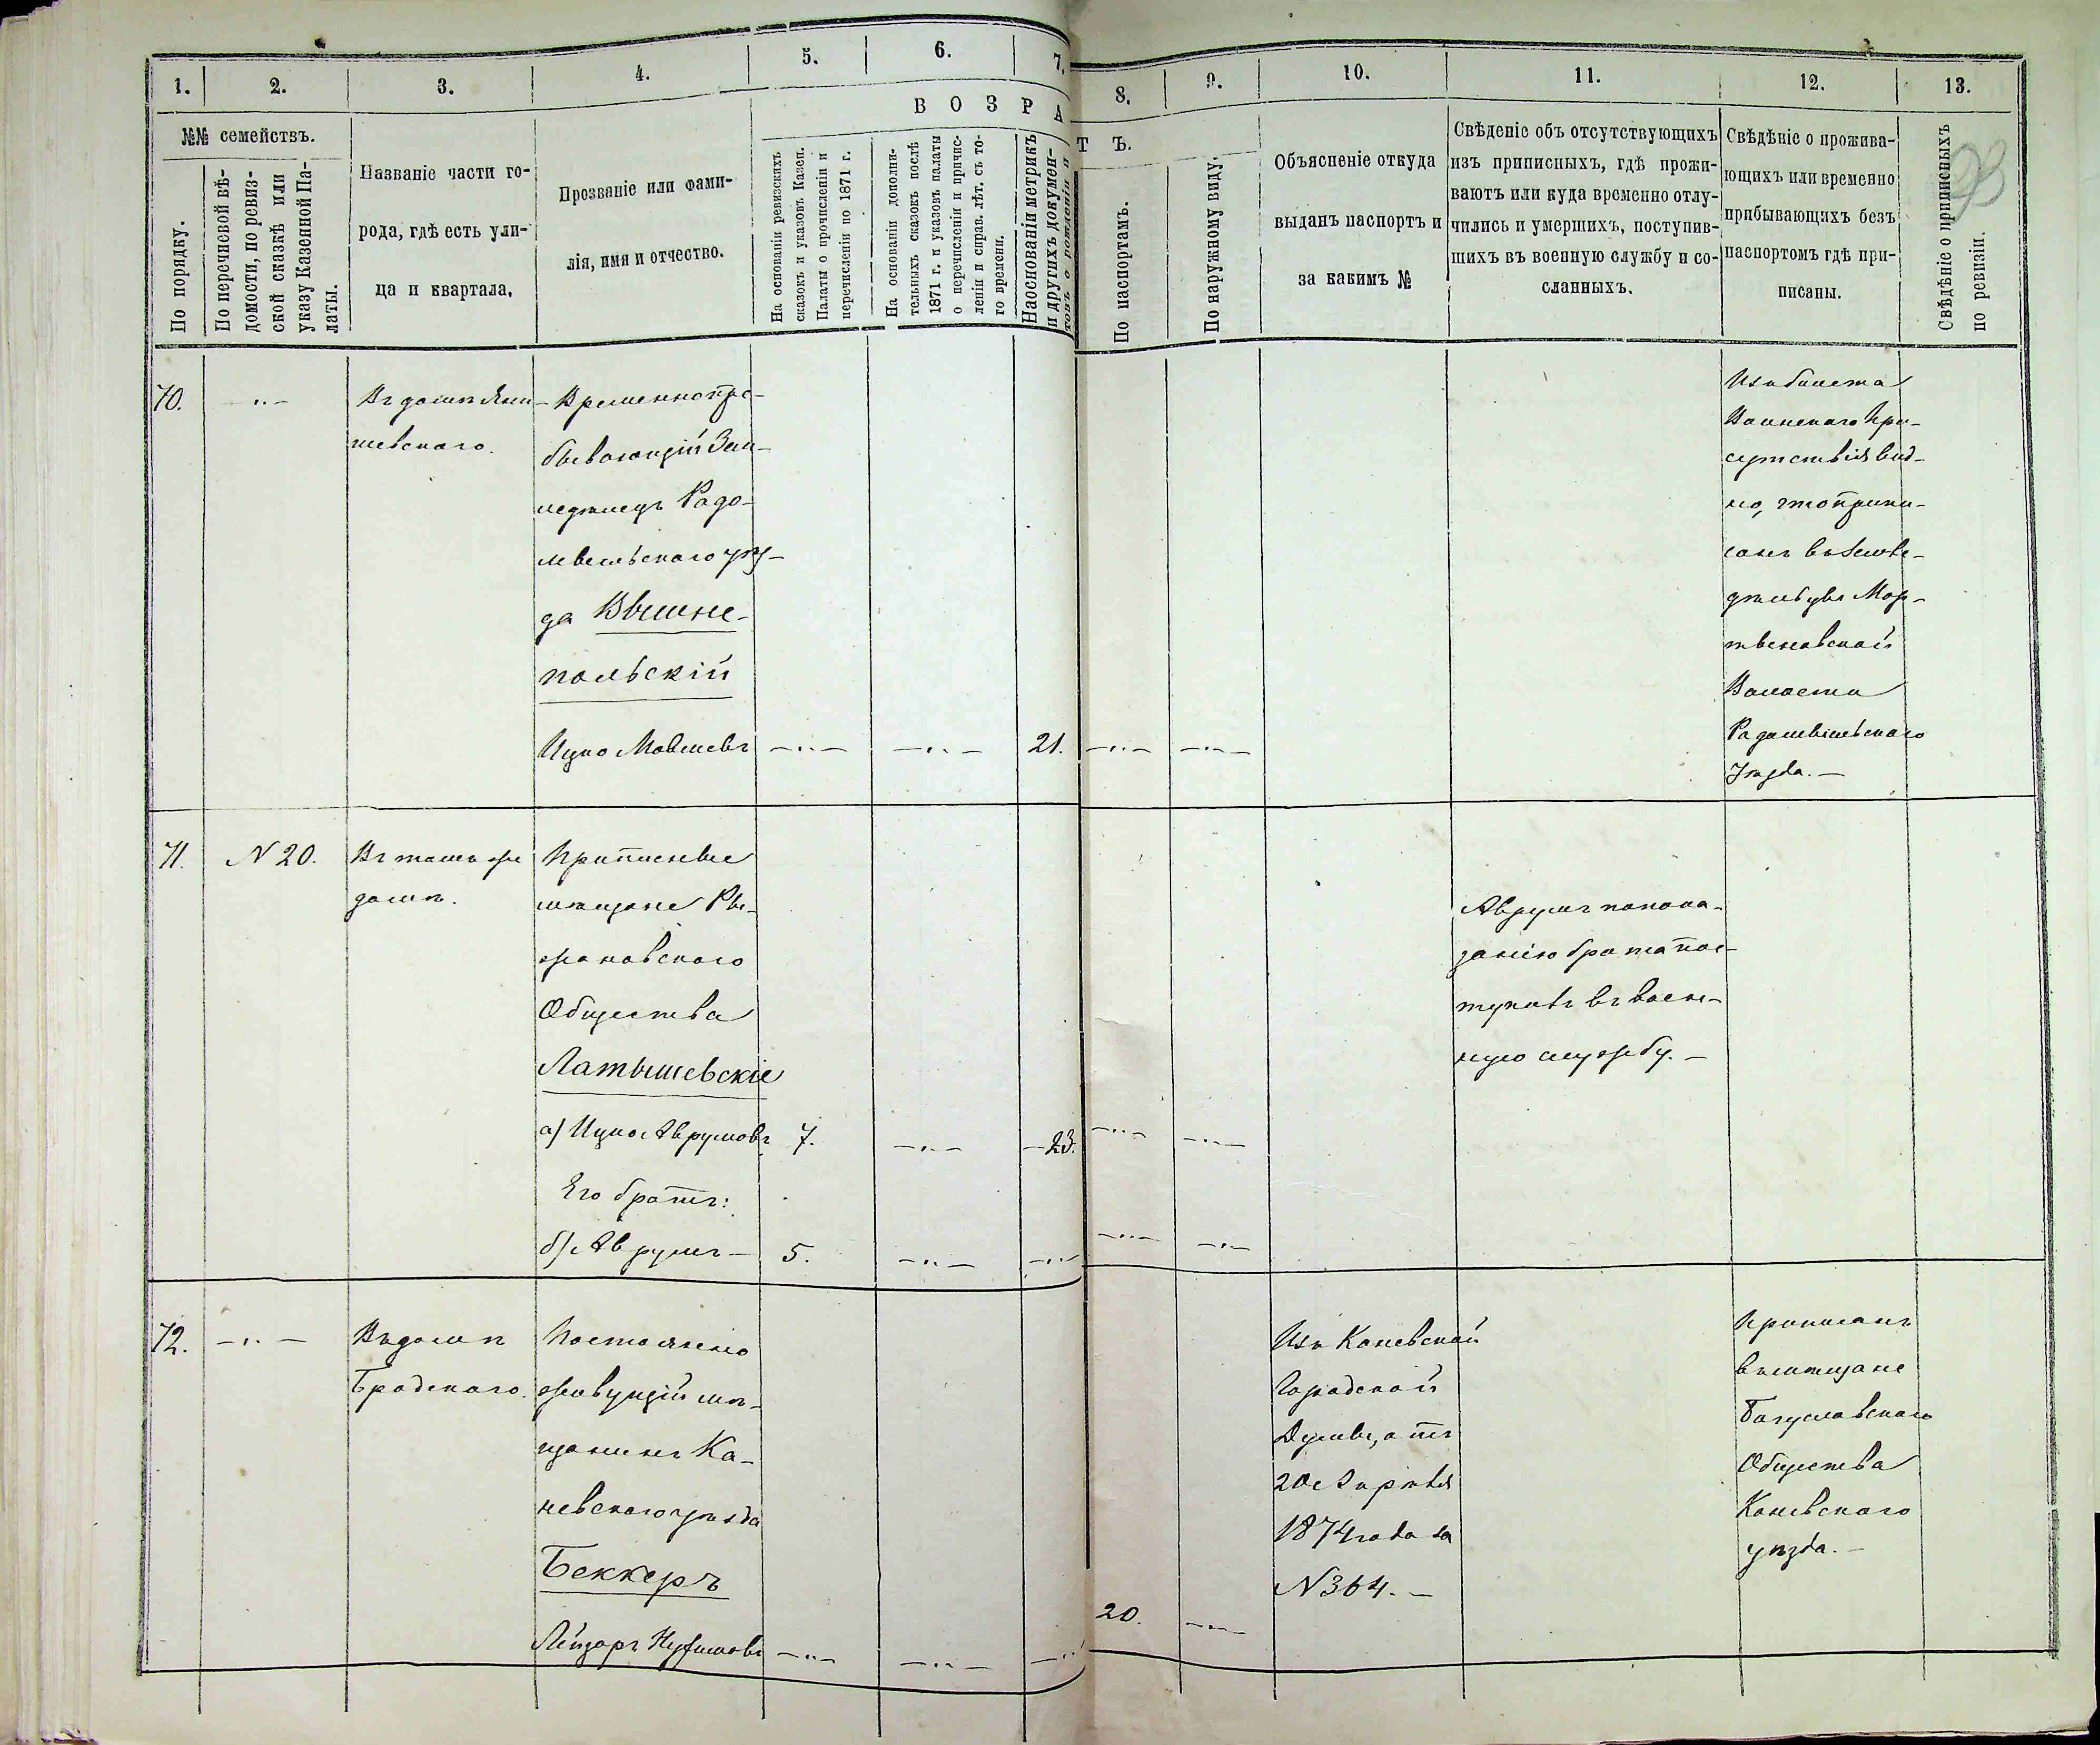 1.
2.
3.
4.
5.
6.
7.
8.
9.
10.
11.
12.
13.
№№ семействъ.
По порядку.
По перечневой вѣ-
домости, по ревиз-
ской сказкѣ или
указу Казенной Па-
латы.
Названіе части го-
рода, гдѣ есть ули-
ца и квартала.
Прозваніе или фами-
лія, имя и отчество.
В О З Р А
Т Ъ.
На основаніи ревизскихъ
сказокъ и указовъ Казен.
Палаты о прочисленіи и
перечисленіи по 1871 г.
На основаніи дополни-
тельныхъ сказокъ послѣ
1871 г. и указовъ палаты
о перечисленіи и причис-
леніи и справ. лѣт. съ то-
го времени.
На основаніи метрикъ
и другихъ докумен-
товъ о рожденіи и
По паспортамъ.
По наружному виду.
Объясненіе откуда
выданъ паспортъ и
за какимъ №
Свѣденіе объ отсутствующихъ
изъ приписныхъ, гдѣ прожи-
ваютъ или куда временно отлу-
чились и умершихъ, поступив-
шихъ въ военную службу и со-
сланныхъ.
Свѣдѣніе о прожива-
ющихъ или временно
прибывающихъ безъ
паспортомъ гдѣ при-
писаны.
Свѣдѣніе о приписныхъ
по ревизіи.
70.
Въ домѣ Яни-
шевскаго.
Временно пре-
бывающій Зем-
ледѣлецъ Радо-
мысльскаго уѣз-
да Вышне-
польскій
Ицко Мовшевъ
21.
Изъ билета
Воинскаго При-
сутствія вид-
но, что припи-
санъ въ земле-
дѣльцы
Волости
Радомысльскаго
Уѣзда.
71.
N 20.
Въ томъ же
домѣ.
Приписные
мѣщане Ры-
жановскаго
Общества
Латышевскіе
а) Ицко Аврумовъ
7.
23.
Его братъ:
б) Аврумъ
5.
Аврумъ по пока-
занію брата пос-
тупилъ въ воен-
ную службу.
72.
Въ домѣ
Бродскаго.
Постоянно
живущій мѣ-
щанинъ Ка-
невскаго уѣзда
Беккеръ
Лейзоръ
20.
Изъ Каневской
Городской
Думы, отъ
20 Апрѣля
1874 года за
N 364.
Приписанъ
въ мѣщане
Богуславскаго
Общества
Каневскаго
уѣзда.